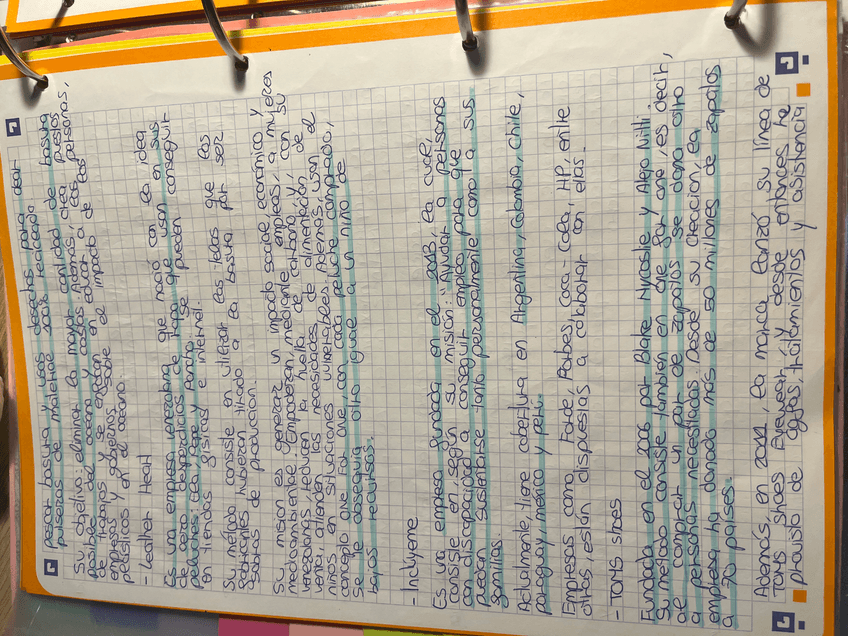 pescar basura y usos desechos para crear
pulseras de material 100% reciclado.
Su objetivo: eliminar la mayor cantidad de basura
posible del océano y costas. Además, crea puestos
de trabajos y se enfocan en educar a las personas,
empresas y gobiernos sobre el impacto de los
plásticos en el océano.
- Leather Heart
Es una empresa venezolana que nació con la idea
de usar desperdicios de tapa que usan en sus
peluches: Eda, Pepe y Pancho. Se pueden conseguir
en tiendas físicas e internet.
Su método consiste en utilizar las telas que las
fabricantes hubieran tirado a la basura por ser
sobras de producción.
Su misión es generar un impacto social, económico y
medioambiental. Empoderan, mediante empleos, a mujeres
venezolanas, reducen la huella de carbono y, con su
venta, atienden las necesidades de alimentación de
niños en situaciones vulnerables. Además, usan el
concepto One For One, con cada peluche comprado,
se le obsequia otro igual a un niño de
bajos recursos.
- Incluyeme
Es una emplea fundada en el 2013, la cual,
consiste en, según su misión: Ayudar a personas
con discapacidad a conseguir empleo para que
puedan sustentarse tanto personalmente como a sus
familias.
Actualmente tiene cobertura en Argentina, Colombia, Chile,
Paraguay, México y Perú.
Empresas como Forde, Forbes, Coca-Cola, HP, entre
otras, están dispuestas a colaborar con ellas.
- TOMS Shoes
Fundada en el 2006 por Blake Mycoskie y Alejo Nitti.
Su método consiste también en One For One, es decir,
al comprar un par de zapatos se dona otro
a personas necesitadas. Desde su creación, la
empresa ha donado más de 50 millones de zapatos
a 70 países.
Además, en 2011, la marca lanzó su línea de
TOMS Shoes Eyewear, y desde entonces ha
provisto de gafas, tratamientos y asistencia